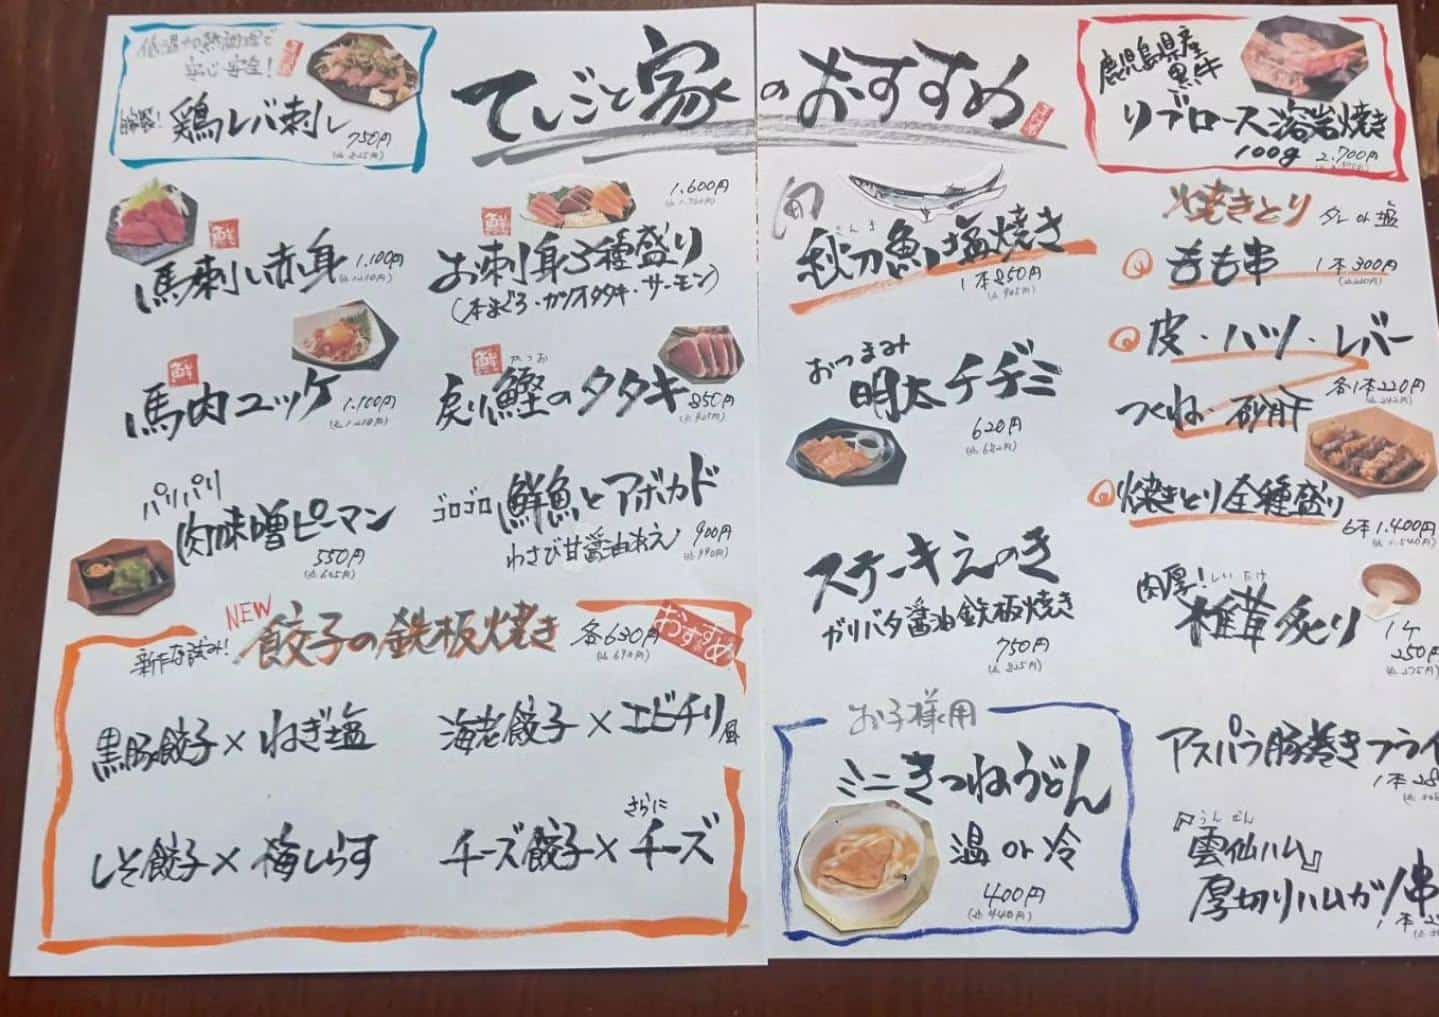 てしごと家のおすすめ
低温加熱調理で
安心安全!
鶏レバ刺し
750円
(込825円)
鮮
馬刺し赤身
1.100円
(込1.210円)
鮮
お刺身3種盛り
1.600円
(込1.760円)
(本まぐろ・カツオタタキ・サーモン)
鮮
馬肉ユッケ
1.100円
(込1.210円)
鮮
かつお
戻り鰹のタタキ
850円
(込935円)
パリパリ
肉味噌ピーマン
550円
(込605円)
ゴロゴロ
鮮魚とアボカド
わさび甘醤油和え
900円
(込990円)
新たな試み!
NEW
餃子の鉄板焼き
各630円
(込693円)
おすすめ
黒豚餃子×ねぎ塩
海老餃子×エビチリ風
しそ餃子×梅しらす
さらに
チーズ餃子×チーズ
旬
さんま
秋刀魚塩焼き
1本850円
(込935円)
おつまみ
明太チヂミ
620円
(込682円)
ステーキえのき
ガリバタ醤油鉄板焼き
750円
(込825円)
お子様用
ミニきつねうどん
温or冷
400円
(込440円)
鹿児島県産
黒牛
リブロース溶岩焼き
100g
2.700円
焼きとり
タレor塩
もも串
1本300円
(込330円)
皮・ハツ・レバー
つくね・砂肝
各1本220円
(込242円)
焼きとり全種盛り
6本1.400円
(込1.540円)
肉厚!
しいたけ
椎茸炙り
1ケ
250円
(込275円)
アスパラ豚巻きフライ
1本28
うんぜん
『雲仙ハム』
厚切りハムカツ串
1本2